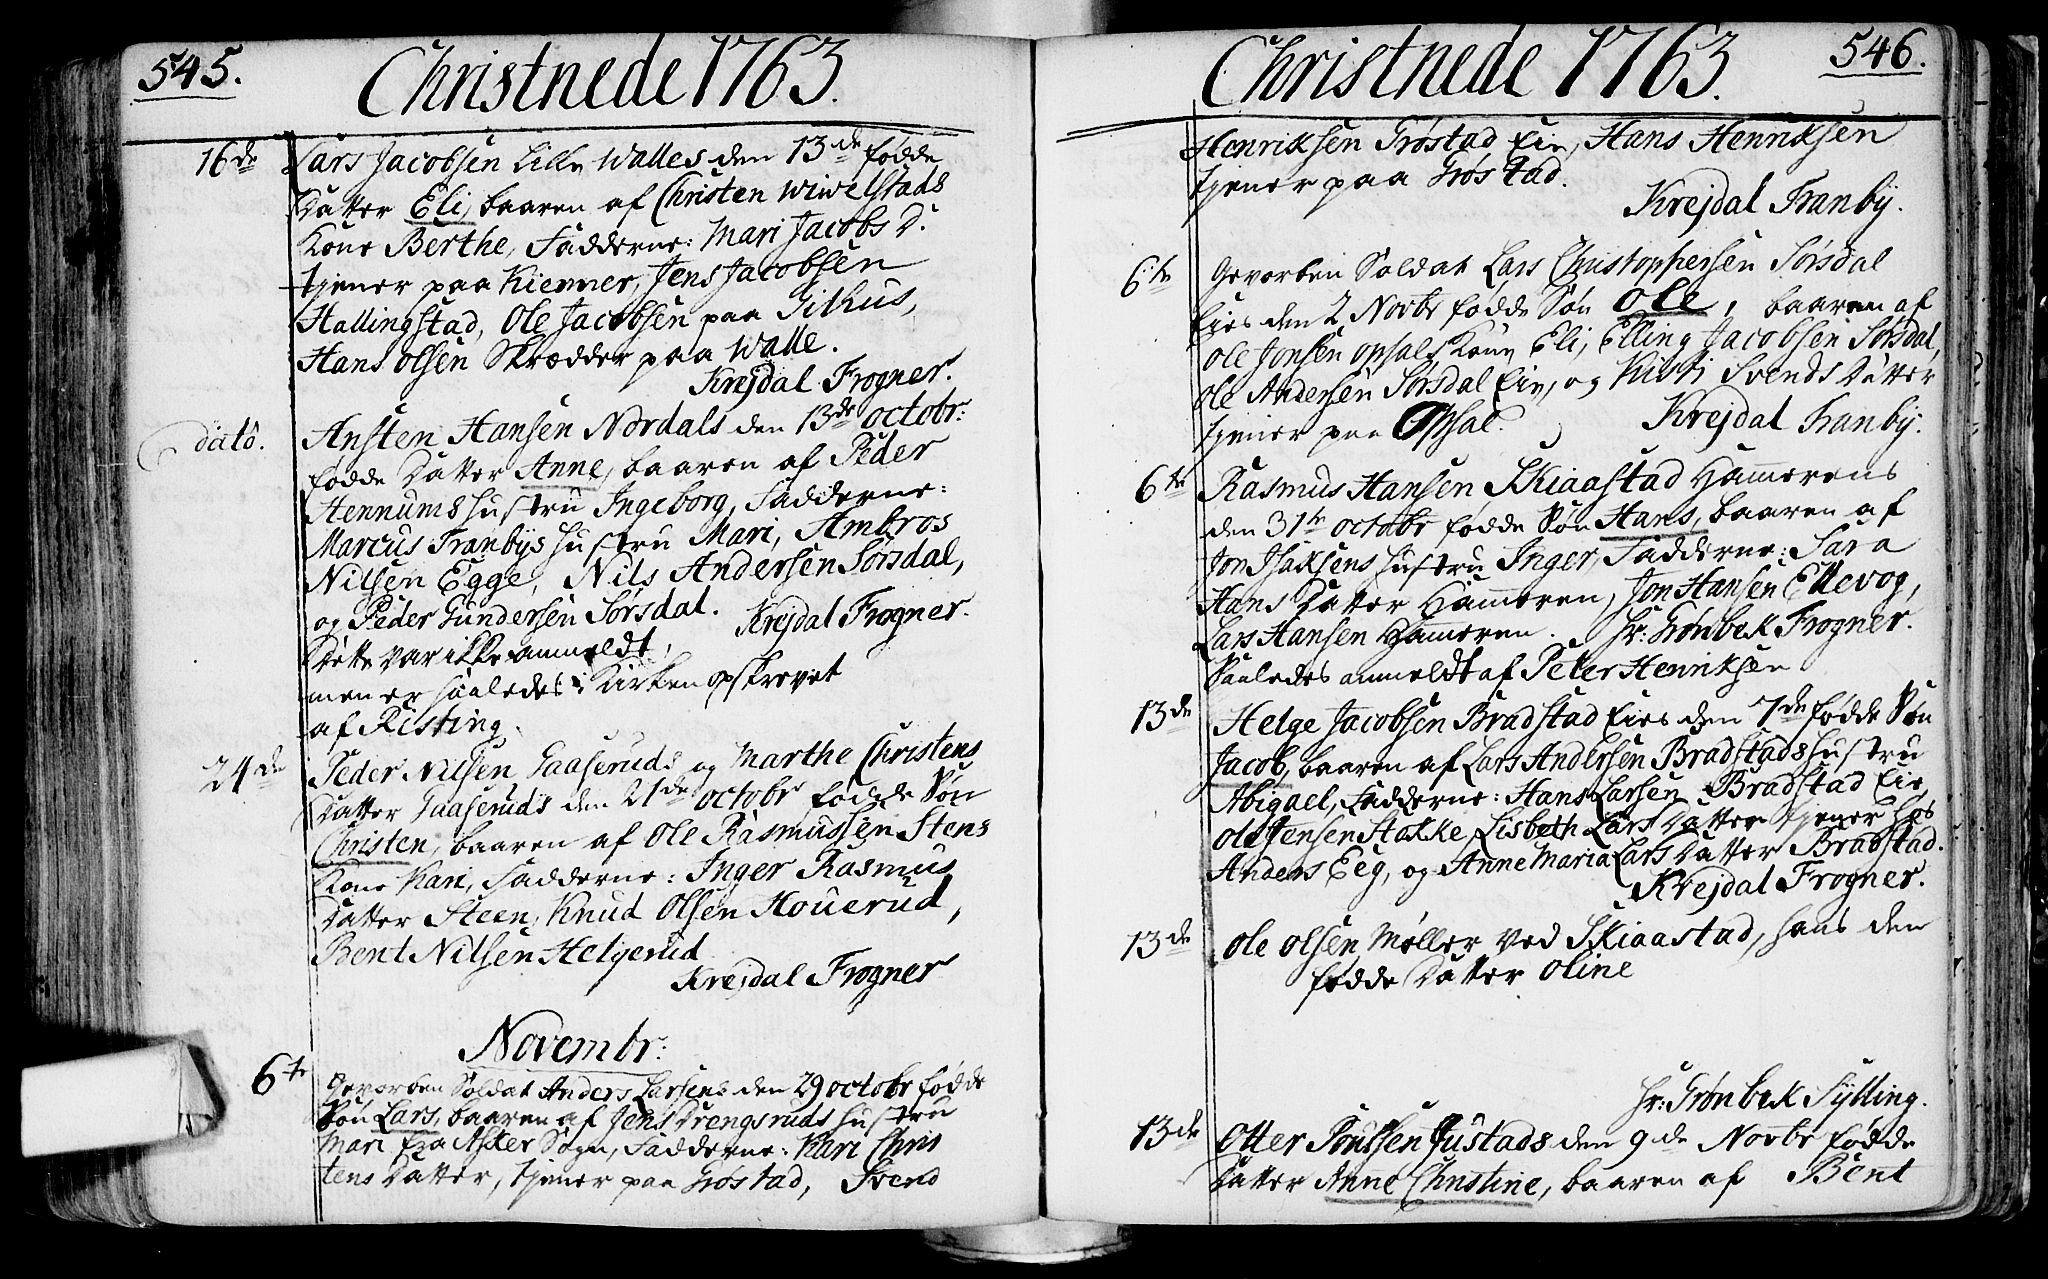 545.
Christnede 1763.
16de Lars Jacobsen Lille Walles den 13de fødde
Datter Eli, baaren af Christen Wiwelstads
Kone Berthe, Fadderne: Mari Jacobs D.
tjener paa Kiemmer, Jens Jacobsen
Hallingstad, Ole Jacobsen paa Gilhus,
Hans Olsen Skrædder paa Walle.
Krejdal Frogner.
dato. Ansten Hansen Nordals den 13de octobr:
fødde Datter Anne, baaren af Peder
Hennums Hustru Ingeborg, Fadderne:
Marcus Tranbys Hustru Mari, Ambros
Nilsen Egge, Nils Andersen Sørsdal,
og Peder Gundersen Sørsdal. Krejdal Frogner.
Dette var ikke anmeldt,
men er saaledes i Kirken opskrevet
af Risting.
24de Peder Nilsen Gaaseruds og Marthe Christens
Datter Gaaseruds den 21de octobr fødde Søn
Christen, baaren af Ole Rasmussen Stens
Kone Kari, Fadderne: Inger Rasmus
Datter Steen, Knud Olsen Houerud,
Bent Nilsen Helgerud
Krejdal Frogner
Novembr:
6te Gevorben Soldat Anders Larsens den 29 octobr fødde
Søn Lars, baaren af Jens Drengsruds Hustru
Mari fra Asker Sogn, Fadderne: Kari Chris
tens Datter, tjener paa Grøstad, Svend
546.
Christnede 1763.
Henriksen Grøstad Eie, Hans Henriksen
tjener paa Grøstad.
Krejdal Tranby.
6te Gevorben Soldat Lars Christophersen Sørsdal
Eies den 2 Novbr fødde Søn Ole, baaren af
Ole Jonsen Opsals Kone Eli, Elling Jacobsen Sørsdal,
Ole Andersen Sørsdal Eie, og Kisti Svends Datter
tjener paa Opsal. Krejdal Tranby.
6te Rasmus Hansen Skiaastad Hammerens
den 31te octobr fødde Søn Hans, baaren af
Jon Isaksens Hustru Inger, Fadderne: Sara
Hans Datter Hammeren, Jon Hansen Ellevog,
Lars Hansen Hammeren. Hr: Grønbek Frogner.
Saaledes anmeldt af Peter Henriksen
13de Helge Jacobsen Bradstad Eies den 7de fødde Søn
Jacob, baaren af Lars Andersen Bradstads Hustru
Abigael, Fadderne: Hans Larsen Bradstad Eie,
Ole Jensen Stakke, Lisbeth Lars Datter tjener hos
Anders Eeg, og Anne Maria Lars Datter Bradstad.
Krejdal Frogner.
13de Ole Olsen Møller ved Skiaastad, hans den
fødde Datter Oline
Hr: Grønbek Sylling.
13de Otter Justads den 9de Novbr fødde
Datter Anne Christine, baaren af Bent